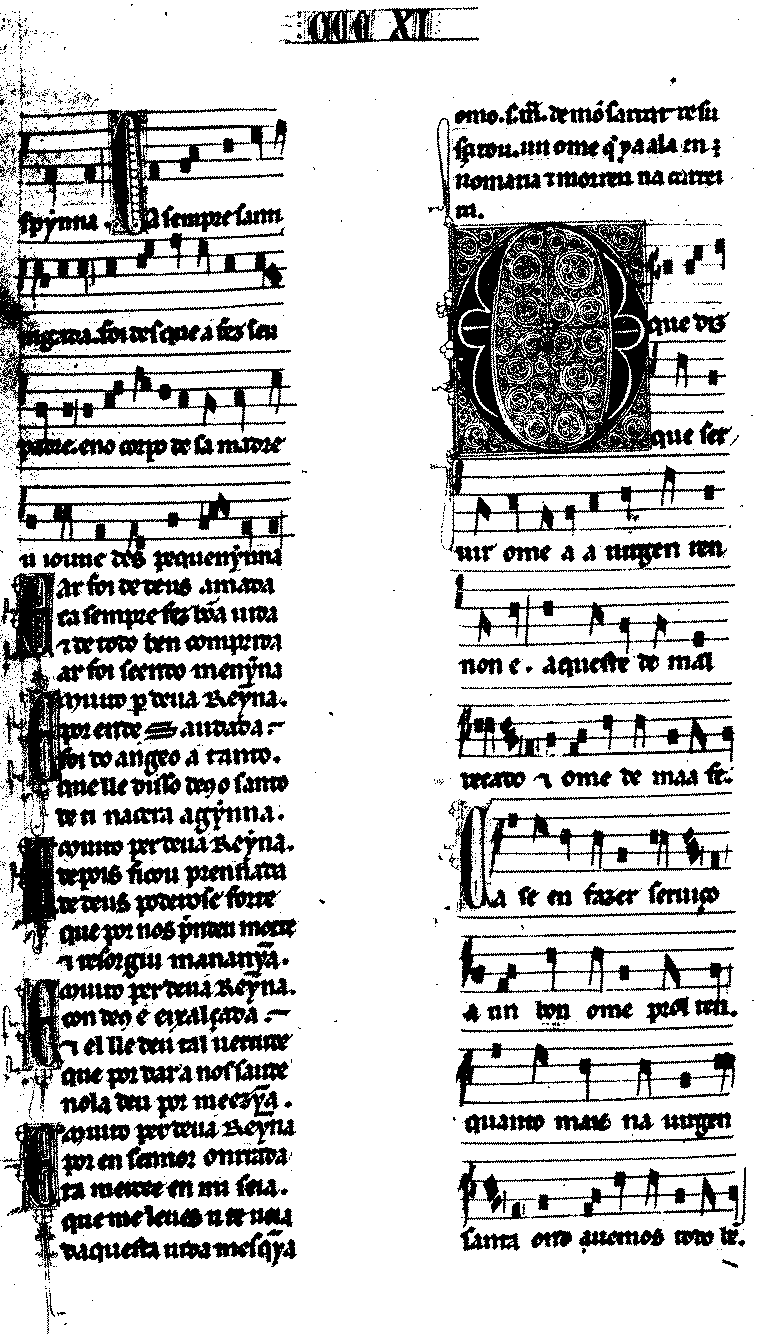 CCC XI
spỹnna. Ca sempre santi
uigada. foi des que a fez seu
padre. eno corpo de sa madre
u ioune des pequenỹnna
Par foi de deus amada
ca sempre fez bõa uida
⁊ de toto ben comprida
ar foi seendo menỹna
Muito per deua Reỹna.
por ende audada
foi do angeo a tanto.
que lle disso deo o santo
de ti nacera agỹnna.
Muito per deua Reỹna.
depois ficou prennada
de deus poderos e forte
que por nos prendeu morte
⁊ resorgiu mananỹa.
Muito per deua Reỹna.
con deo e eixalçada
⁊ el lle deu tal uertude
que por dar a nos saude
nola deu por meezỹa.
Muito per deua Reỹna
por en sennor onrrada
ta mercee en mi seia.
que me leues u te ueia
daquesta uida mesqỹa
omo. s. m. de mõsarrat resu
scitou. un ome q̇ ya ala en
romaria ⁊ morreu na carrei
ra.
O que diz
que ser
uir ome a a uirgen ren
non é. aqueste de mal
recado ⁊ ome de maa fe.
Ca se en fazer seruiço
a un bon ome prol ten.
quanto mais na uirgen
santa ond auemos todo bẽ.